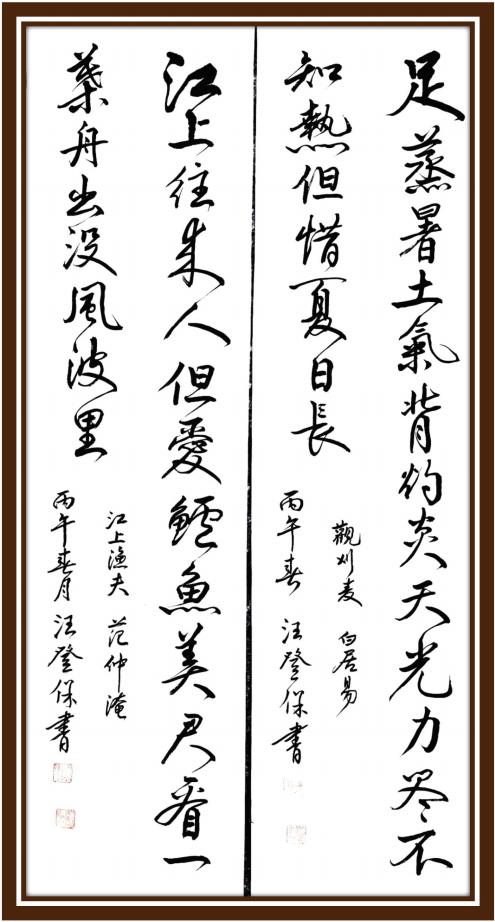 足蒸暑土氣背灼炎天光力尽不
知熱但惜夏日長
觀刈麦 白居易
丙午春 汪登保書
江上往来人但愛鱸魚美君看一
葉舟出没風波里
江上渔夫 范仲淹
丙午春月 汪登保書